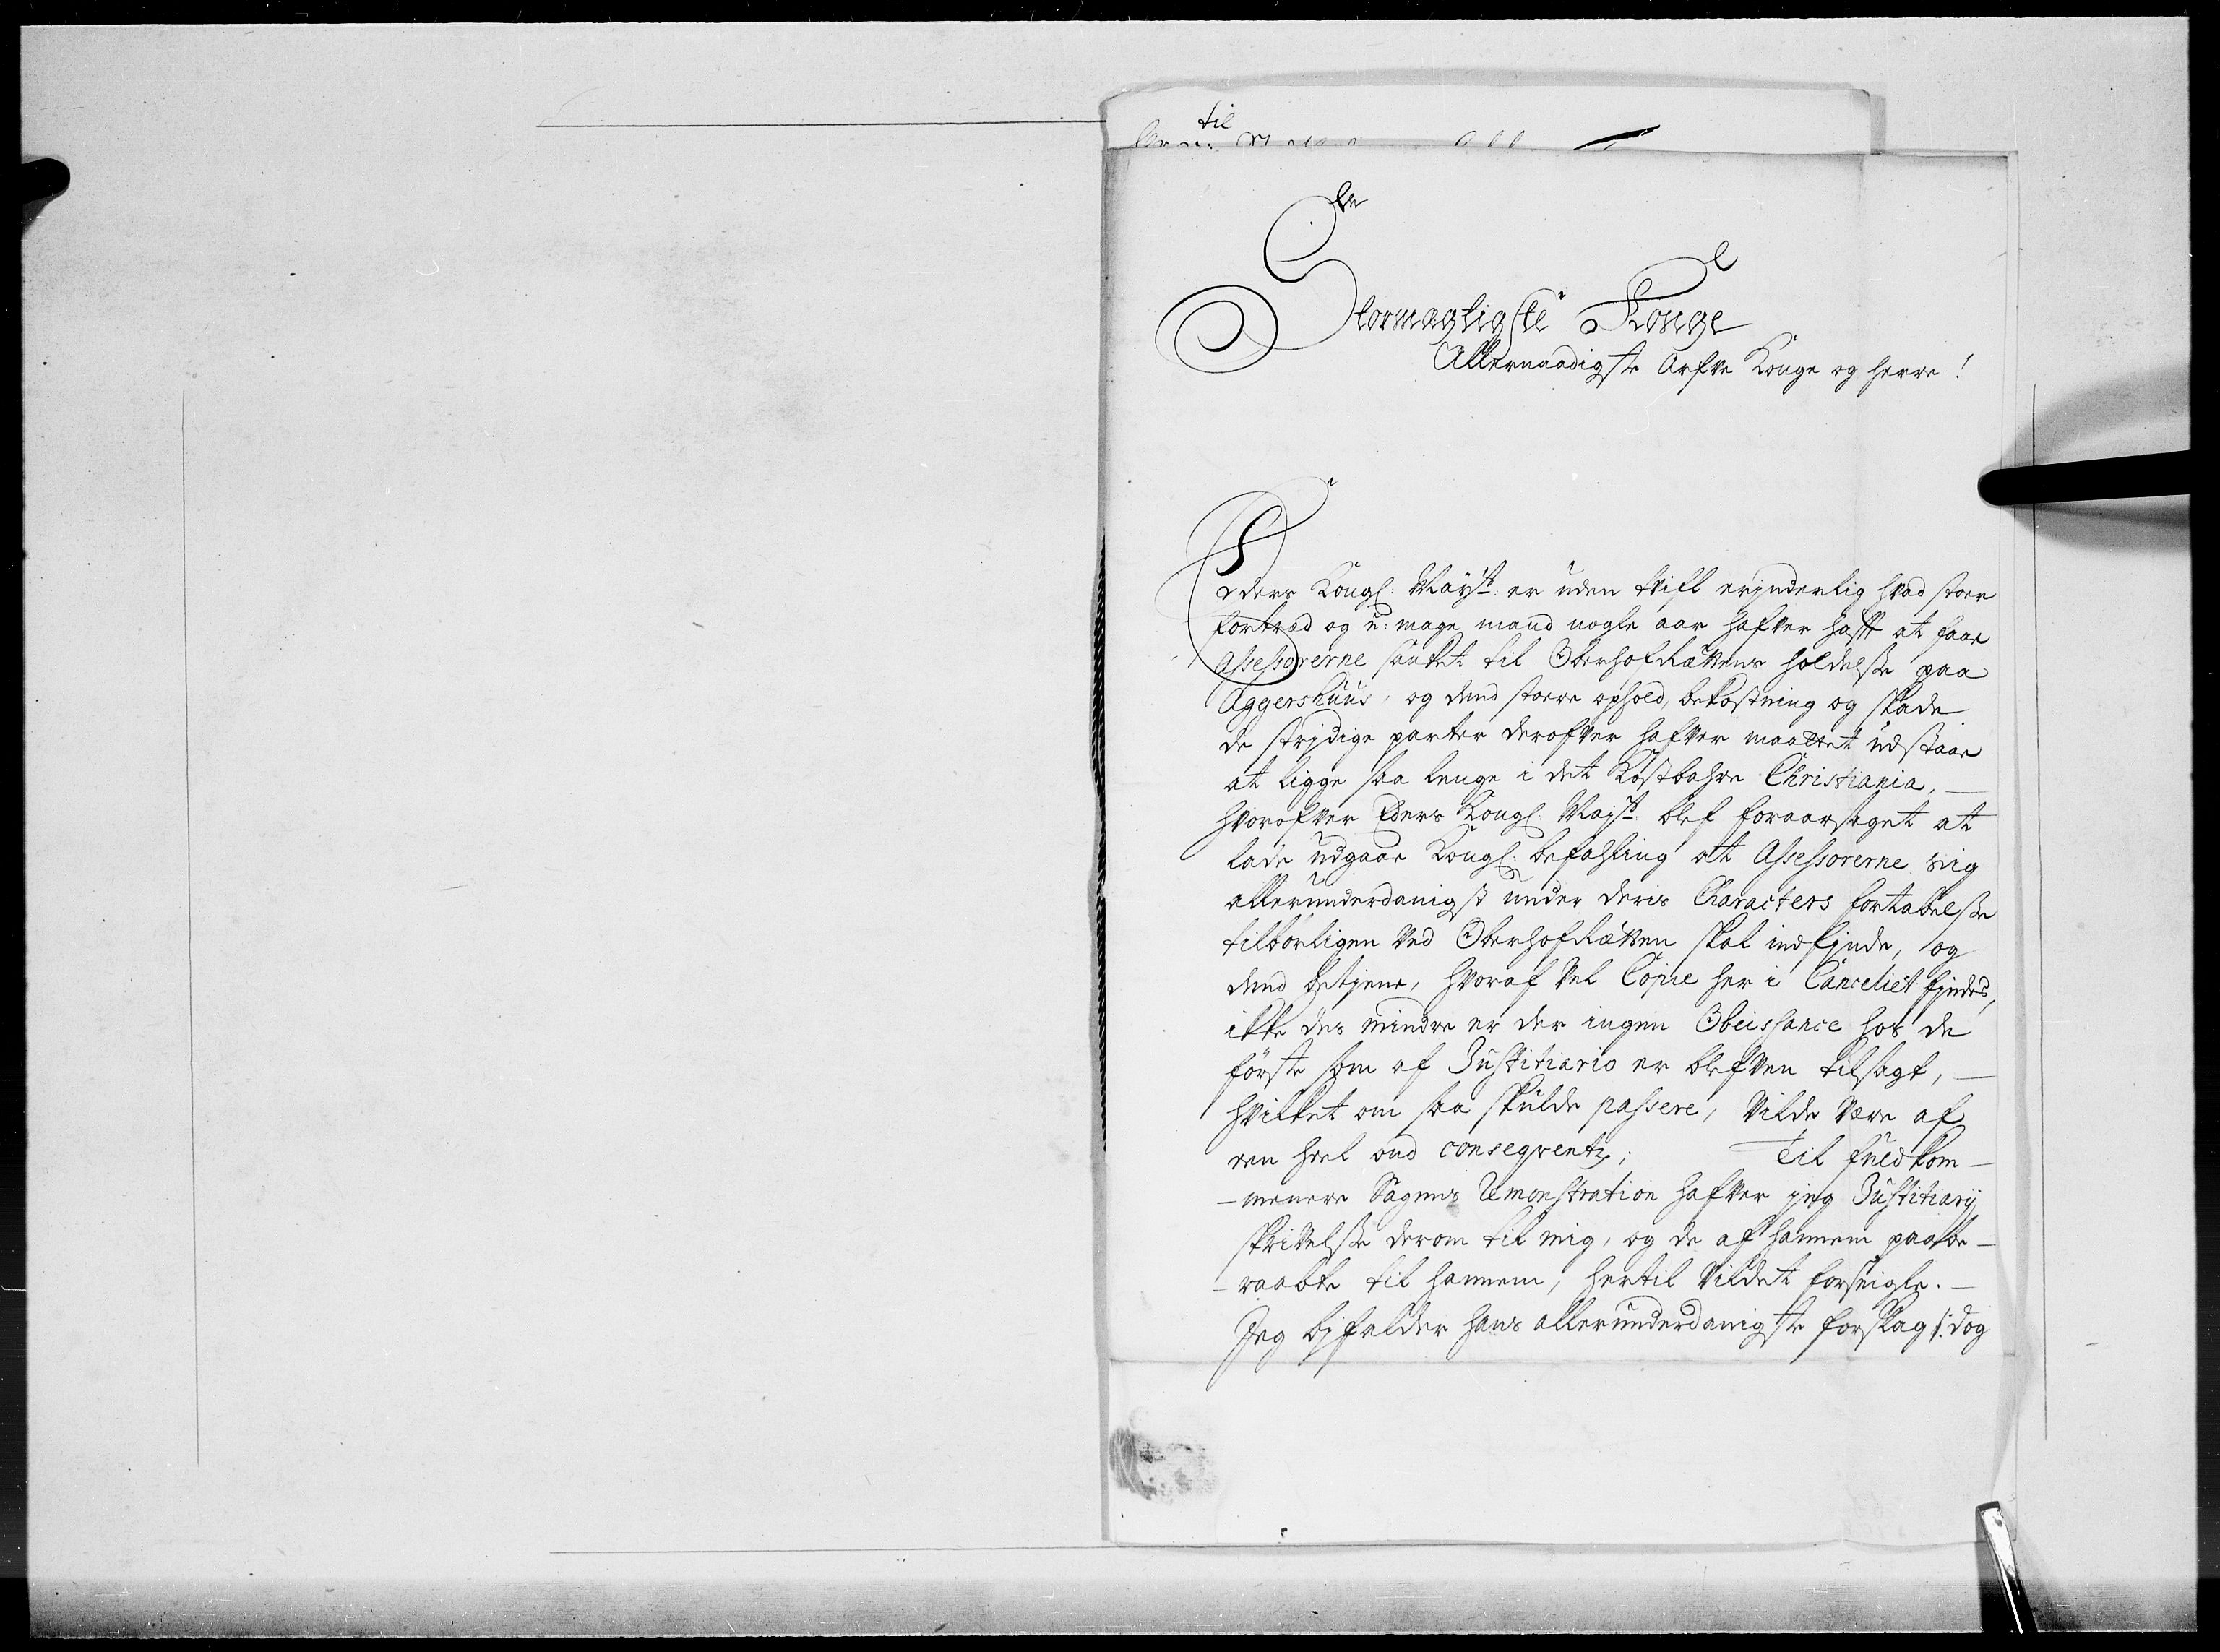 til
Stormægtigste Konge
Allernaadigste Arfve Konge og Herre!
Eders Kongl: Mayst: er uden tvifl erinderlig hvad stoer
fortræd og u-mage mand nogle aar hafver hafft at faae
Assessorerne samlet til OberhofRættens holdelsse paa
Aggershuus, og dend storre ophold, bekostning og skade
de strjdige parter derofver hafver maattet udstaae
at ligge saa lenge i det Kostbahre Christiania,
hvorofver Eders Kongl: Mayst: blef foraarsaget at
lade udgaae Kongl: befahling at Assessorerne sig
allerunderdanigst under deris Characters fortabelsse
tilborligen ved OberhofRætten skal indfinde, og
dend betjene, hvoraf vel Copie her i Canceliet findes,
ikke des mindre er der ingen Obeissance hos de
förste som af Justitiario er blefven tilsagt,
hvilket om saa skulde passere, vilde være af
een heel ond conseqventz; Til fuldkom-
-menere Sagens Remonstration hafver jeg Justitiarij
skrivelsse derom til mig, og de af hannem paabe-
-raabte til hannem, hertil vildet forseigle.
Jeg bjfalder hans allerunderdanigste forslag /: dog